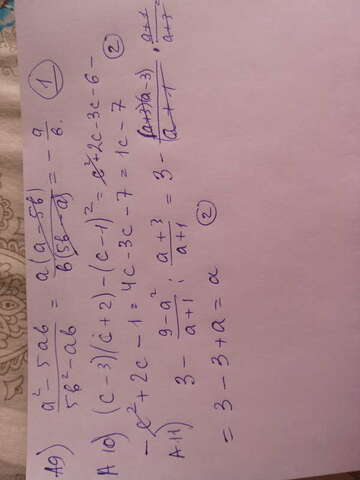 А9) (a² - 5ab)/(5b² - ab) = a(a - 5b)/b(5b - a) = - a/b. ①
А10) (c - 3)(c + 2) - (c - 1)² = c² + 2c - 3c - 6 -
- c² + 2c - 1 = 4c - 3c - 7 = 1c - 7 ②
А11) 3 - (9 - a²)/(a + 1) : (a + 3)/(a + 1) = 3 - (a+3)(a-3)/(a + 1) · (a+1)/(a+3) =
= 3 - 3 + a = a ②